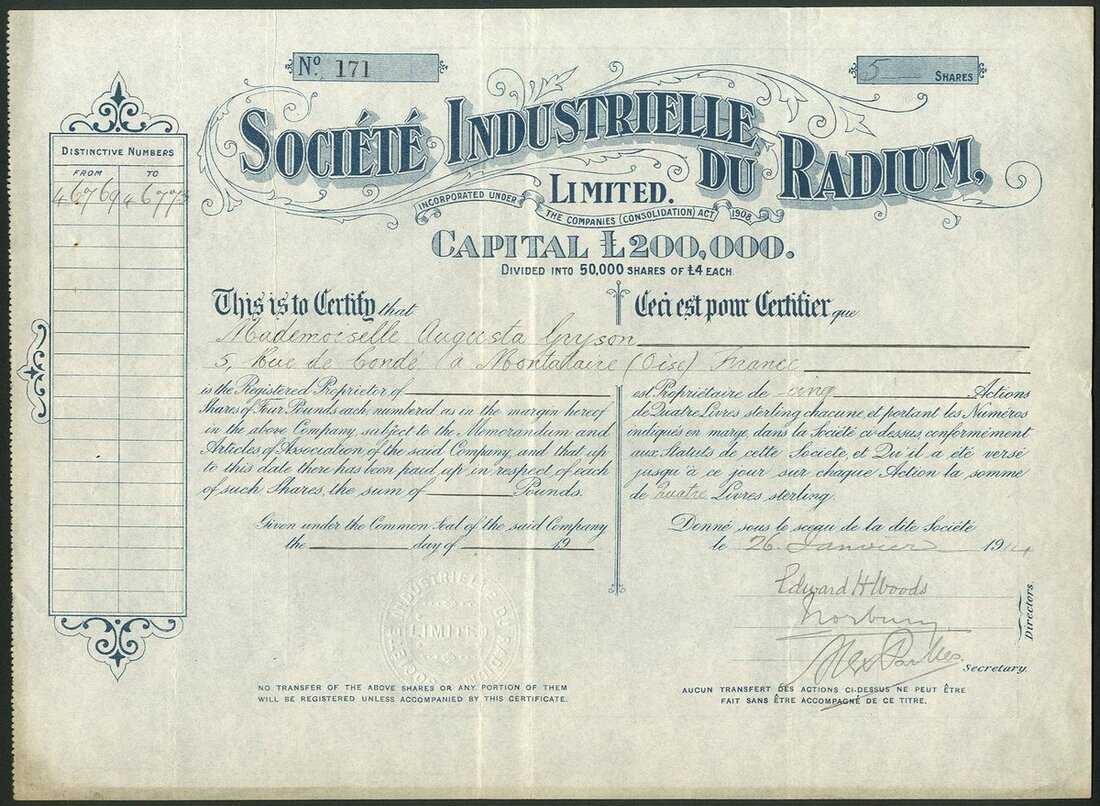 Nº 171
5 SHARES
SOCIÉTÉ INDUSTRIELLE DU RADIUM,
LIMITED.
INCORPORATED UNDER THE COMPANIES (CONSOLIDATION) ACT 1908.
CAPITAL £200,000.
DIVIDED INTO 50,000 SHARES OF £4 EACH
DISTINCTIVE NUMBERS
FROM TO
46769 46773
This is to Certify that
Ceci est pour Certifier que
Mademoiselle Augusta Gryson
5, Rue de Condé à Montataire (Oise) France
is the Registered Proprietor of
Shares of Four Pounds each, numbered as in the margin hereof
in the above Company, subject to the Memorandum and
Articles of Association of the said Company, and that up
to this date there has been paid up in respect of each
of such Shares, the sum of Pounds.
Given under the Common Seal of the said Company
the day of 19
est Propriétaire de cinq Actions
de Quatre Livres sterling chacune, et portant les Numéros
indiqués en marge, dans la Société ci-dessus, conformément
aux Statuts de cette Société, et Qu'il a été versé
jusqu'à ce jour sur chaque Action la somme
de Quatre Livres sterling.
Donné sous le sceau de la dite Société
le 26 Janvier 1914
Edward H Woods
Norbury
Directors.
Alex Parkes
Secretary.
SOCIÉTÉ INDUSTRIELLE DU RADIUM
LIMITED
NO TRANSFER OF THE ABOVE SHARES OR ANY PORTION OF THEM
WILL BE REGISTERED UNLESS ACCOMPANIED BY THIS CERTIFICATE.
AUCUN TRANSFERT DES ACTIONS CI-DESSUS NE PEUT ÊTRE
FAIT SANS ÊTRE ACCOMPAGNÉ DE CE TITRE.